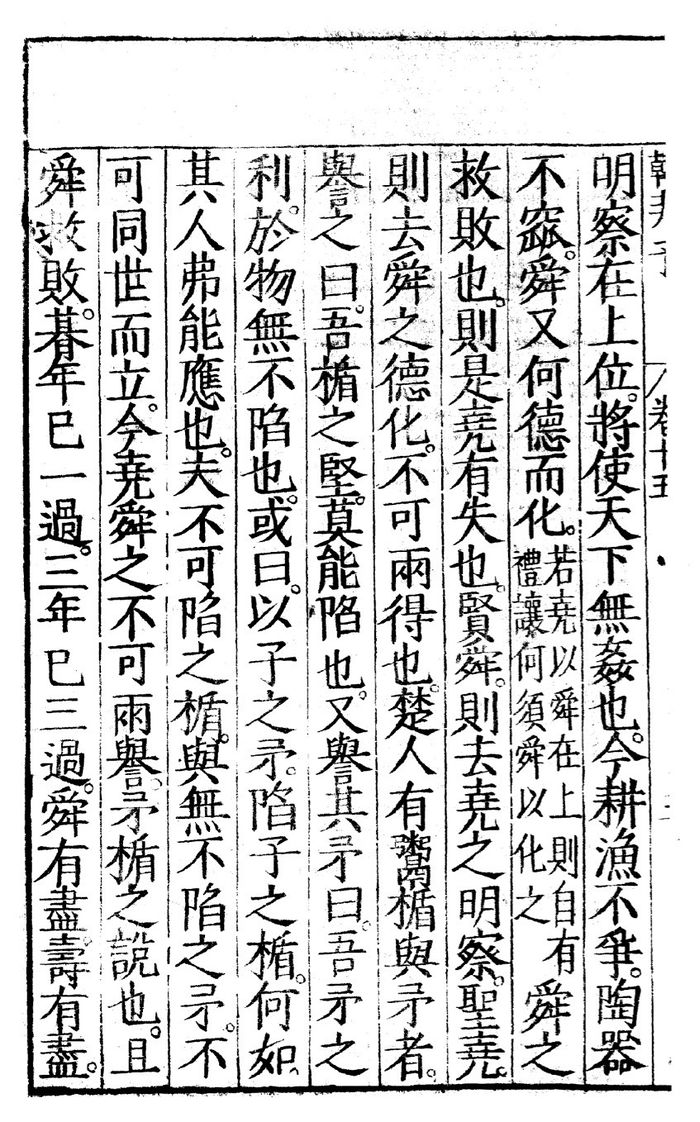 韓非子 卷十五
明察在上位。將使天下無姦也。今耕漁不爭。陶器
不窳。舜又何德而化。若堯以舜在上則自有禮讓何須舜以化之 舜之
救敗也。則是堯有失也。賢舜。則去堯之明察。聖堯。
則去舜之德化。不可兩得也。楚人有鬻楯與矛者。
譽之曰。吾楯之堅。莫能陷也。又譽其矛曰。吾矛之
利。於物無不陷也。或曰。以子之矛。陷子之楯。何如。
其人弗能應也。夫不可陷之楯。與無不陷之矛。不
可同世而立。今堯舜之不可兩譽。矛楯之說也。且
舜救敗。朞年已一過。三年已三過。舜有盡。壽有盡。